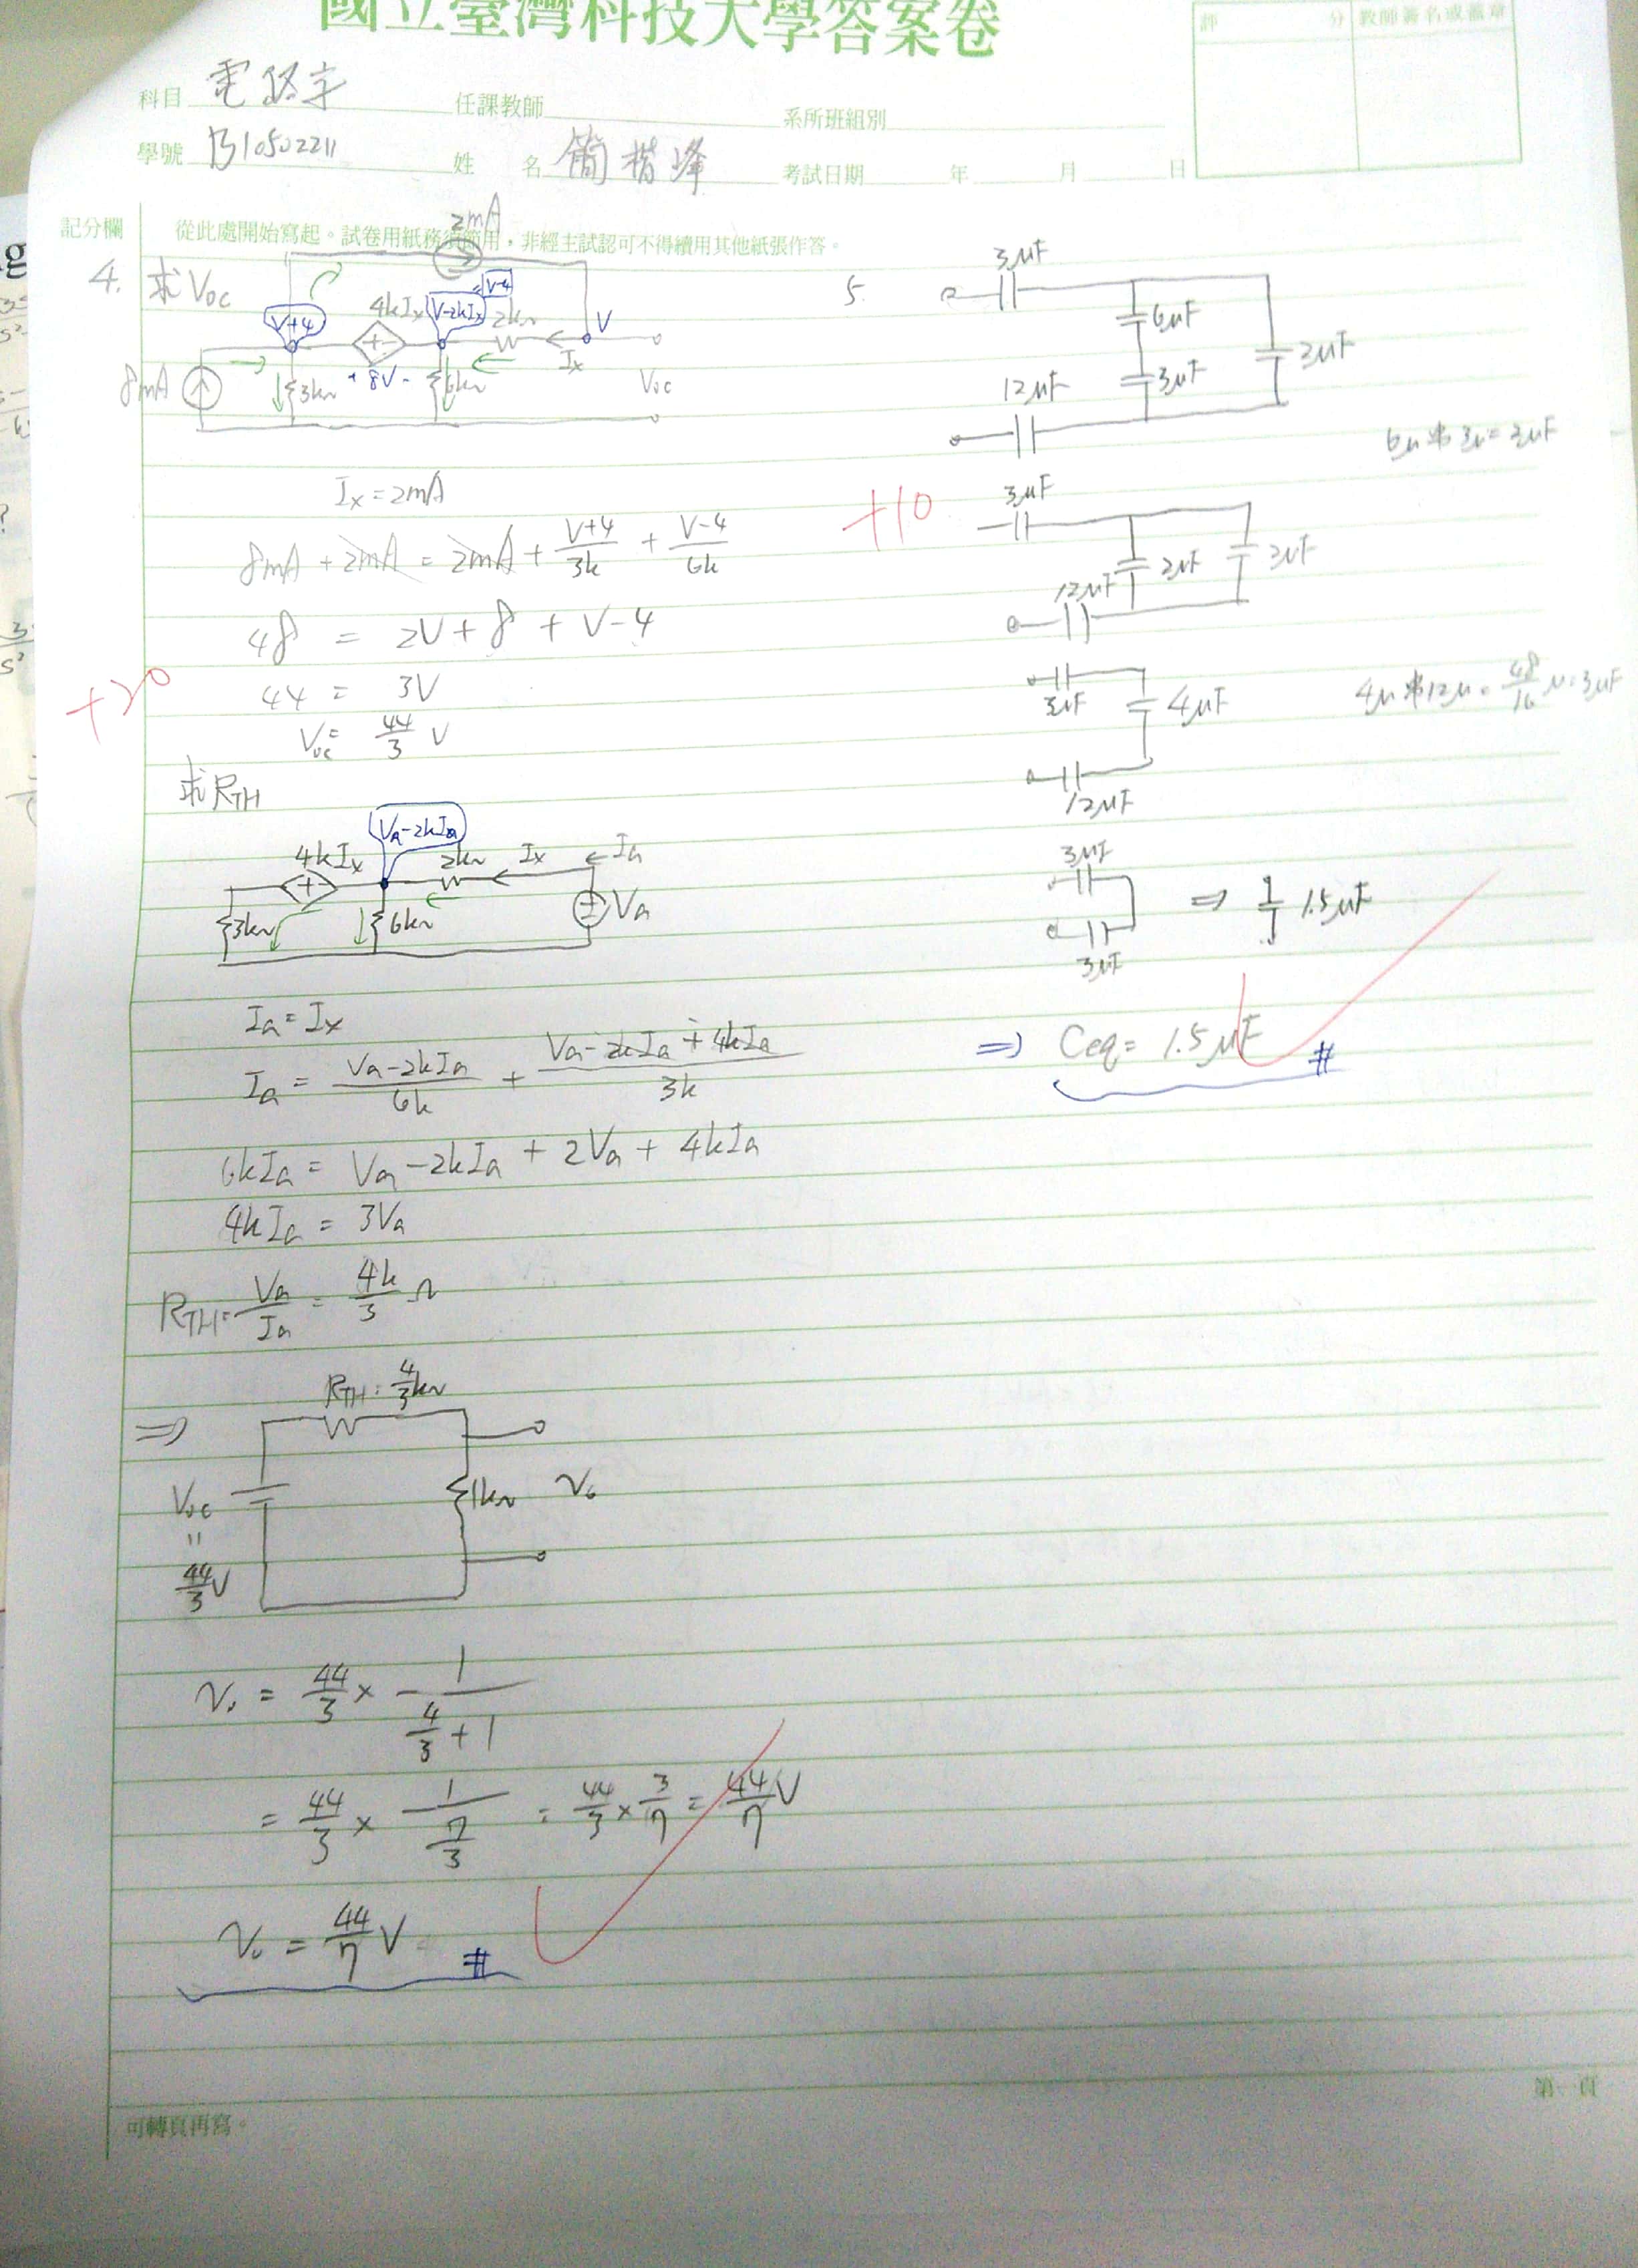 國立臺灣科技大學答案卷
評 分 教師簽名或蓋章
科目 電路學 任課教師 系所班組別
學號 B10502211 姓 名 簡 楷 峰 考試日期 年 月 日
記分欄 從此處開始寫起。試卷用紙務須節用，非經主試認可不得續用其他紙張作答。
4. 求Voc
2mA
V+4
4kIx
V-2kIx
V-4
2kΩ
V
Ix
8mA
3kΩ
+8V-
6kΩ
Voc
Ix=2mA
8mA + 2mA = 2mA + (V+4)/3k + (V-4)/6k
48 = 2V + 8 + V-4
+20
44 = 3V
Voc = 44/3 V
求RTH
Va-2kIa
4kIx
2kΩ
Ix
Ia
3kΩ
6kΩ
Va
Ia = Ix
Ia = (Va-2kIa)/6k + (Va-2kIa+4kIa)/3k
6kIa = Va - 2kIa + 2Va + 4kIa
4kIa = 3Va
RTH = Va/Ia = 4k/3 Ω
⇒
RTH = 4/3 kΩ
Voc
=
44/3 V
1kΩ
Vo
Vo = 44/3 × 1/(4/3 + 1)
= 44/3 × 1/(7/3) = 44/3 × 3/7 = 44/7 V
Vo = 44/7 V #
5.
3μF
6μF
3μF
2μF
12μF
6μ串3μ = 2μF
+10
3μF
2μF
2μF
12μF
3μF
4μF
12μF
4μ串12μ = 48/16 μ = 3μF
3μF
3μF
⇒ 1.5μF
⇒ Ceq = 1.5μF #
第一頁
可轉頁再寫。